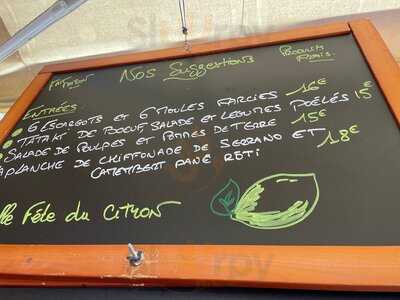 FAIT MAISON
NOS SUGGESTIONS
PRODUITS FRAIS
ENTRÉES
6 ESCARGOTS ET 6 MOULES FARCIES 16€
TATAKI DE BOEUF SALADE ET LEGUMES POÊLÉS 15€
SALADE DE POULPES ET POMMES DE TERRE 15€
PLANCHE DE CHIFFONADE DE SERRANO ET 18€
CAMEMBERT PANE ROTI
Fête du CITRON